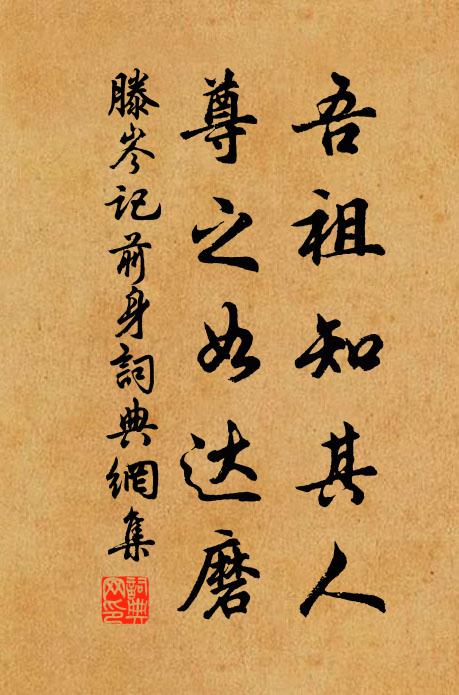 吾祖知其人
尊之如达磨
滕岑记前身詞典網集
詞典网印